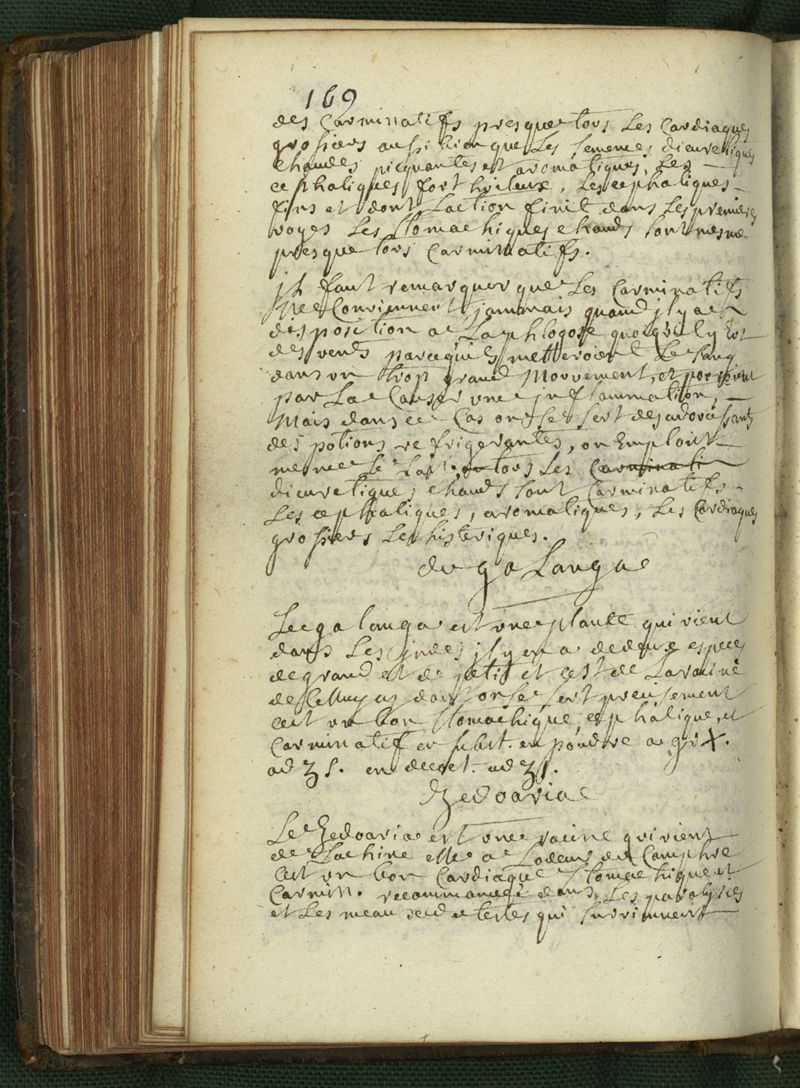 169
des Carminatifs presque tous Les Cardiaques
grossiers aussi bien que Les semences diuretiques
chaudes picquantes et aromatiques, Les
cephaliques fort huileux, Les cephaliques
fins et dont Laction finit dans Les premieres
voyes Les stomachiques chauds sont mesme
presque tous Carminatifs.
jl faut remarquer que Les Carminatifs
ne Conviennent jammais quand jl y a
desposition a La phlogose quoqu'il y
des vents parcequ'ils metteroient Le sang
dans un trop grand Mouvement, et
par La Causer une jnflammation,
Mais dans ce Cas on se sert des adoucissants
des potions refrigerantes, on Emploit
mesme Le Lait. tous Les Carminati
diuretiques chauds sont Carminatifs
Les cephaliques, aromatiques, Les Cardiaques
grossiers Les histeriques.
du ga Langa
Le ga langa est une plante qui vient
dans Les jndes jl y en a de deux especes
de grand et de petit et cest de La racine
de Celluy cy dont on se sert
cest un bon stomachique, cephalique, et
Carminatif en subst. en poudre a gr X.
ad ʒ s. en decoct. ad ʒ s.
Zedoaria
Le Zedoaria est une racine qui vient
de La chine elle a Lodeur du Camphre
Cest un bon Cardiaque stomachique et
Carmin. recommandé dans Les paralysies
et Les meaux de testes qui surviennent